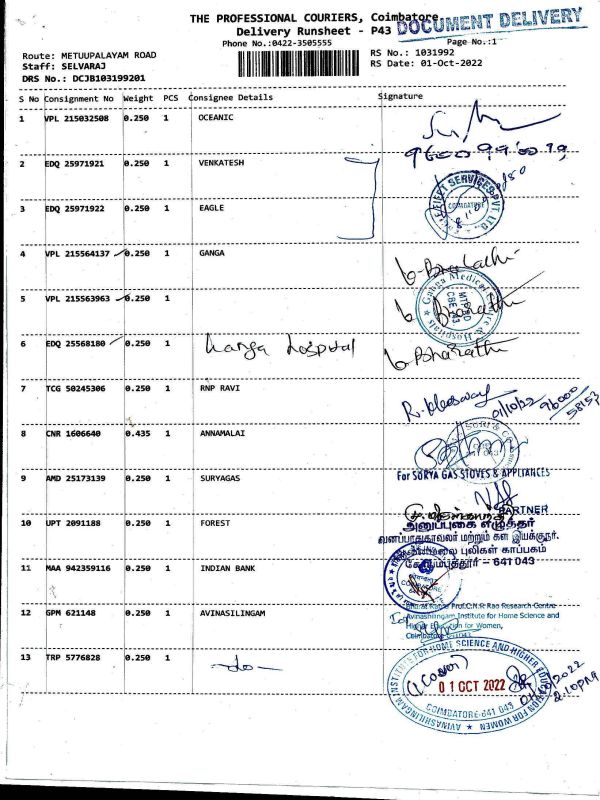 THE PROFESSIONAL COURIERS, Coimbatore
DOCUMENT DELIVERY
Delivery Runsheet - P43
Phone No.:0422-3505555
Page No.:1
Route: METUUPALAYAM ROAD
RS No.: 1031992
Staff: SELVARAJ
RS Date: 01-Oct-2022
DRS No.: DCJB103199201
S No Consignment No Weight PCS Consignee Details Signature
1 VPL 215032508 0.250 1 OCEANIC
2 EDQ 25971921 0.250 1 VENKATESH
3 EDQ 25971922 0.250 1 EAGLE
4 VPL 215564137 0.250 1 GANGA
5 VPL 215563963 0.250 1
6 EDQ 25568180 0.250 1 Ganga hospital
b-Bharathi
7 TCG 50245306 0.250 1 RNP RAVI
01/10/22
8 CNR 1606640 0.435 1 ANNAMALAI
9 AMD 25173139 0.250 1 SURYAGAS
For SURYA GAS STOVES & APPLIANCES
PARTNER
10 UPT 2091188 0.250 1 FOREST
வனப்பாதுகாவலர் மற்றும் கள இயக்குநர்,
ஆனைமலை புலிகள் காப்பகம்
கோயம்புத்தூர் - 641 043
11 MAA 942359116 0.250 1 INDIAN BANK
12 GPM 621148 0.250 1 AVINASILINGAM
Bharat Ratna Prof.C.N.R Rao Research Centre
Avinashilingam Institute for Home Science and
Higher Education for Women,
Coimbatore 641043
13 TRP 5776828 0.250 1 -do-
AVINASHILINGAM INSTITUTE FOR HOME SCIENCE AND HIGHER EDUCATION FOR WOMEN
01 OCT 2022
COIMBATORE-641 043
2.10PM